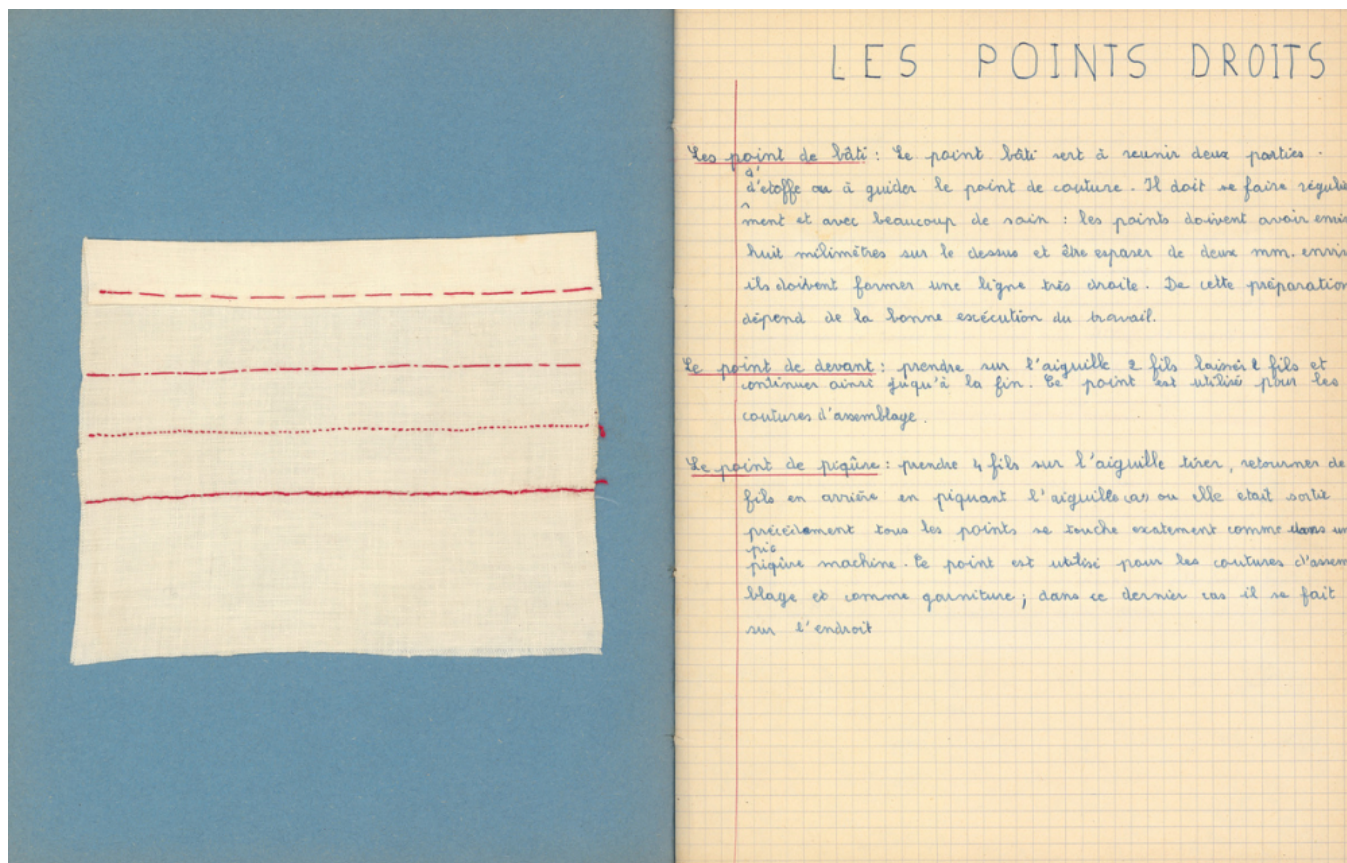 LES POINTS DROITS
Les point de bâti : Le point bâti sert à reunir deux parties.
d'
d'étoffe ou à guider le point de couture. Il doit se faire réguliè
ment et avec beaucoup de soin : les points doivent avoir envir
huit milimètres sur le dessus et être espaser de deux mm. envir
ils doivent former une ligne très droite. De cette préparation
dépend de la bonne exécution du travail.
Le point de devant : prendre sur l'aiguille 2 fils laisser 2 fils et
continuer ainsi juqu'à la fin. Ce point est utilisé pour les
coutures d'assemblage.
Le point de piqûre : prendre 4 fils sur l'aiguille tirer, retourner de
fils en arrière en piquant l'aiguille ou elle etait sortie
précédement tous les points se touche exatement comme dans un
piq
piqûre machine. Ce point est utilisé pour les coutures d'assem
blage et comme garniture ; dans ce dernier cas il se fait
sur l'endroit